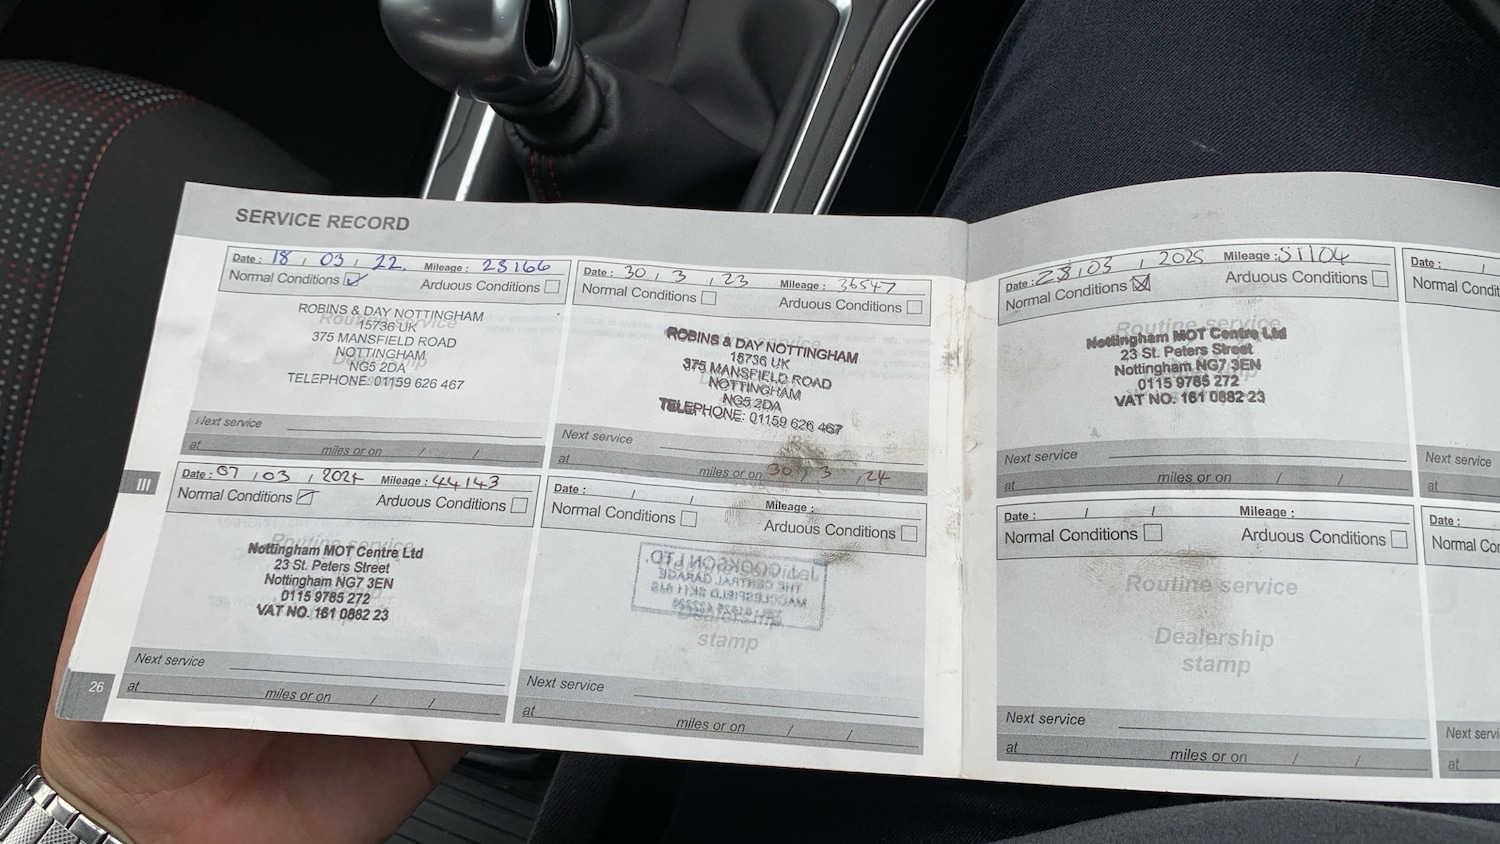 SERVICE RECORD
Date : 18 / 03 / 22. Mileage : 23166
Normal Conditions Arduous Conditions
Routine service
ROBINS & DAY NOTTINGHAM
15736 UK
375 MANSFIELD ROAD
NOTTINGHAM
NG5 2DA
TELEPHONE: 01159 626 467
Next service
at miles or on / /
Date : 30 / 3 / 23 Mileage : 36547
Normal Conditions Arduous Conditions
ROBINS & DAY NOTTINGHAM
15736 UK
375 MANSFIELD ROAD
NOTTINGHAM
NG5 2DA
TELEPHONE: 01159 626 467
Next service
at miles or on 30 / 3 / 24
III
Date : 07 / 03 / 2024 Mileage : 44143
Normal Conditions Arduous Conditions
Routine service
Nottingham MOT Centre Ltd
23 St. Peters Street
Nottingham NG7 3EN
0115 9785 272
VAT NO. 161 0882 23
Next service
at miles or on / /
26
Date : / / Mileage :
Normal Conditions Arduous Conditions
COOKSON LTD.
THE CENTRAL GARAGE
MACCLESFIELD SK11
stamp
Next service
at miles or on / /
Date : 03 / 2025 Mileage : 51104
Normal Conditions Arduous Conditions
Routine service
Nottingham MOT Centre Ltd
23 St. Peters Street
Nottingham NG7 3EN
0115 9785 272
VAT NO. 161 0882 23
Next service
at miles or on / /
Date : / / Mileage :
Normal Conditions Arduous Conditions
Routine service
Dealership
stamp
Next service
at miles or on / /
Date : /
Normal Condit
Next service
at
Date : /
Normal Co
Next servi
at